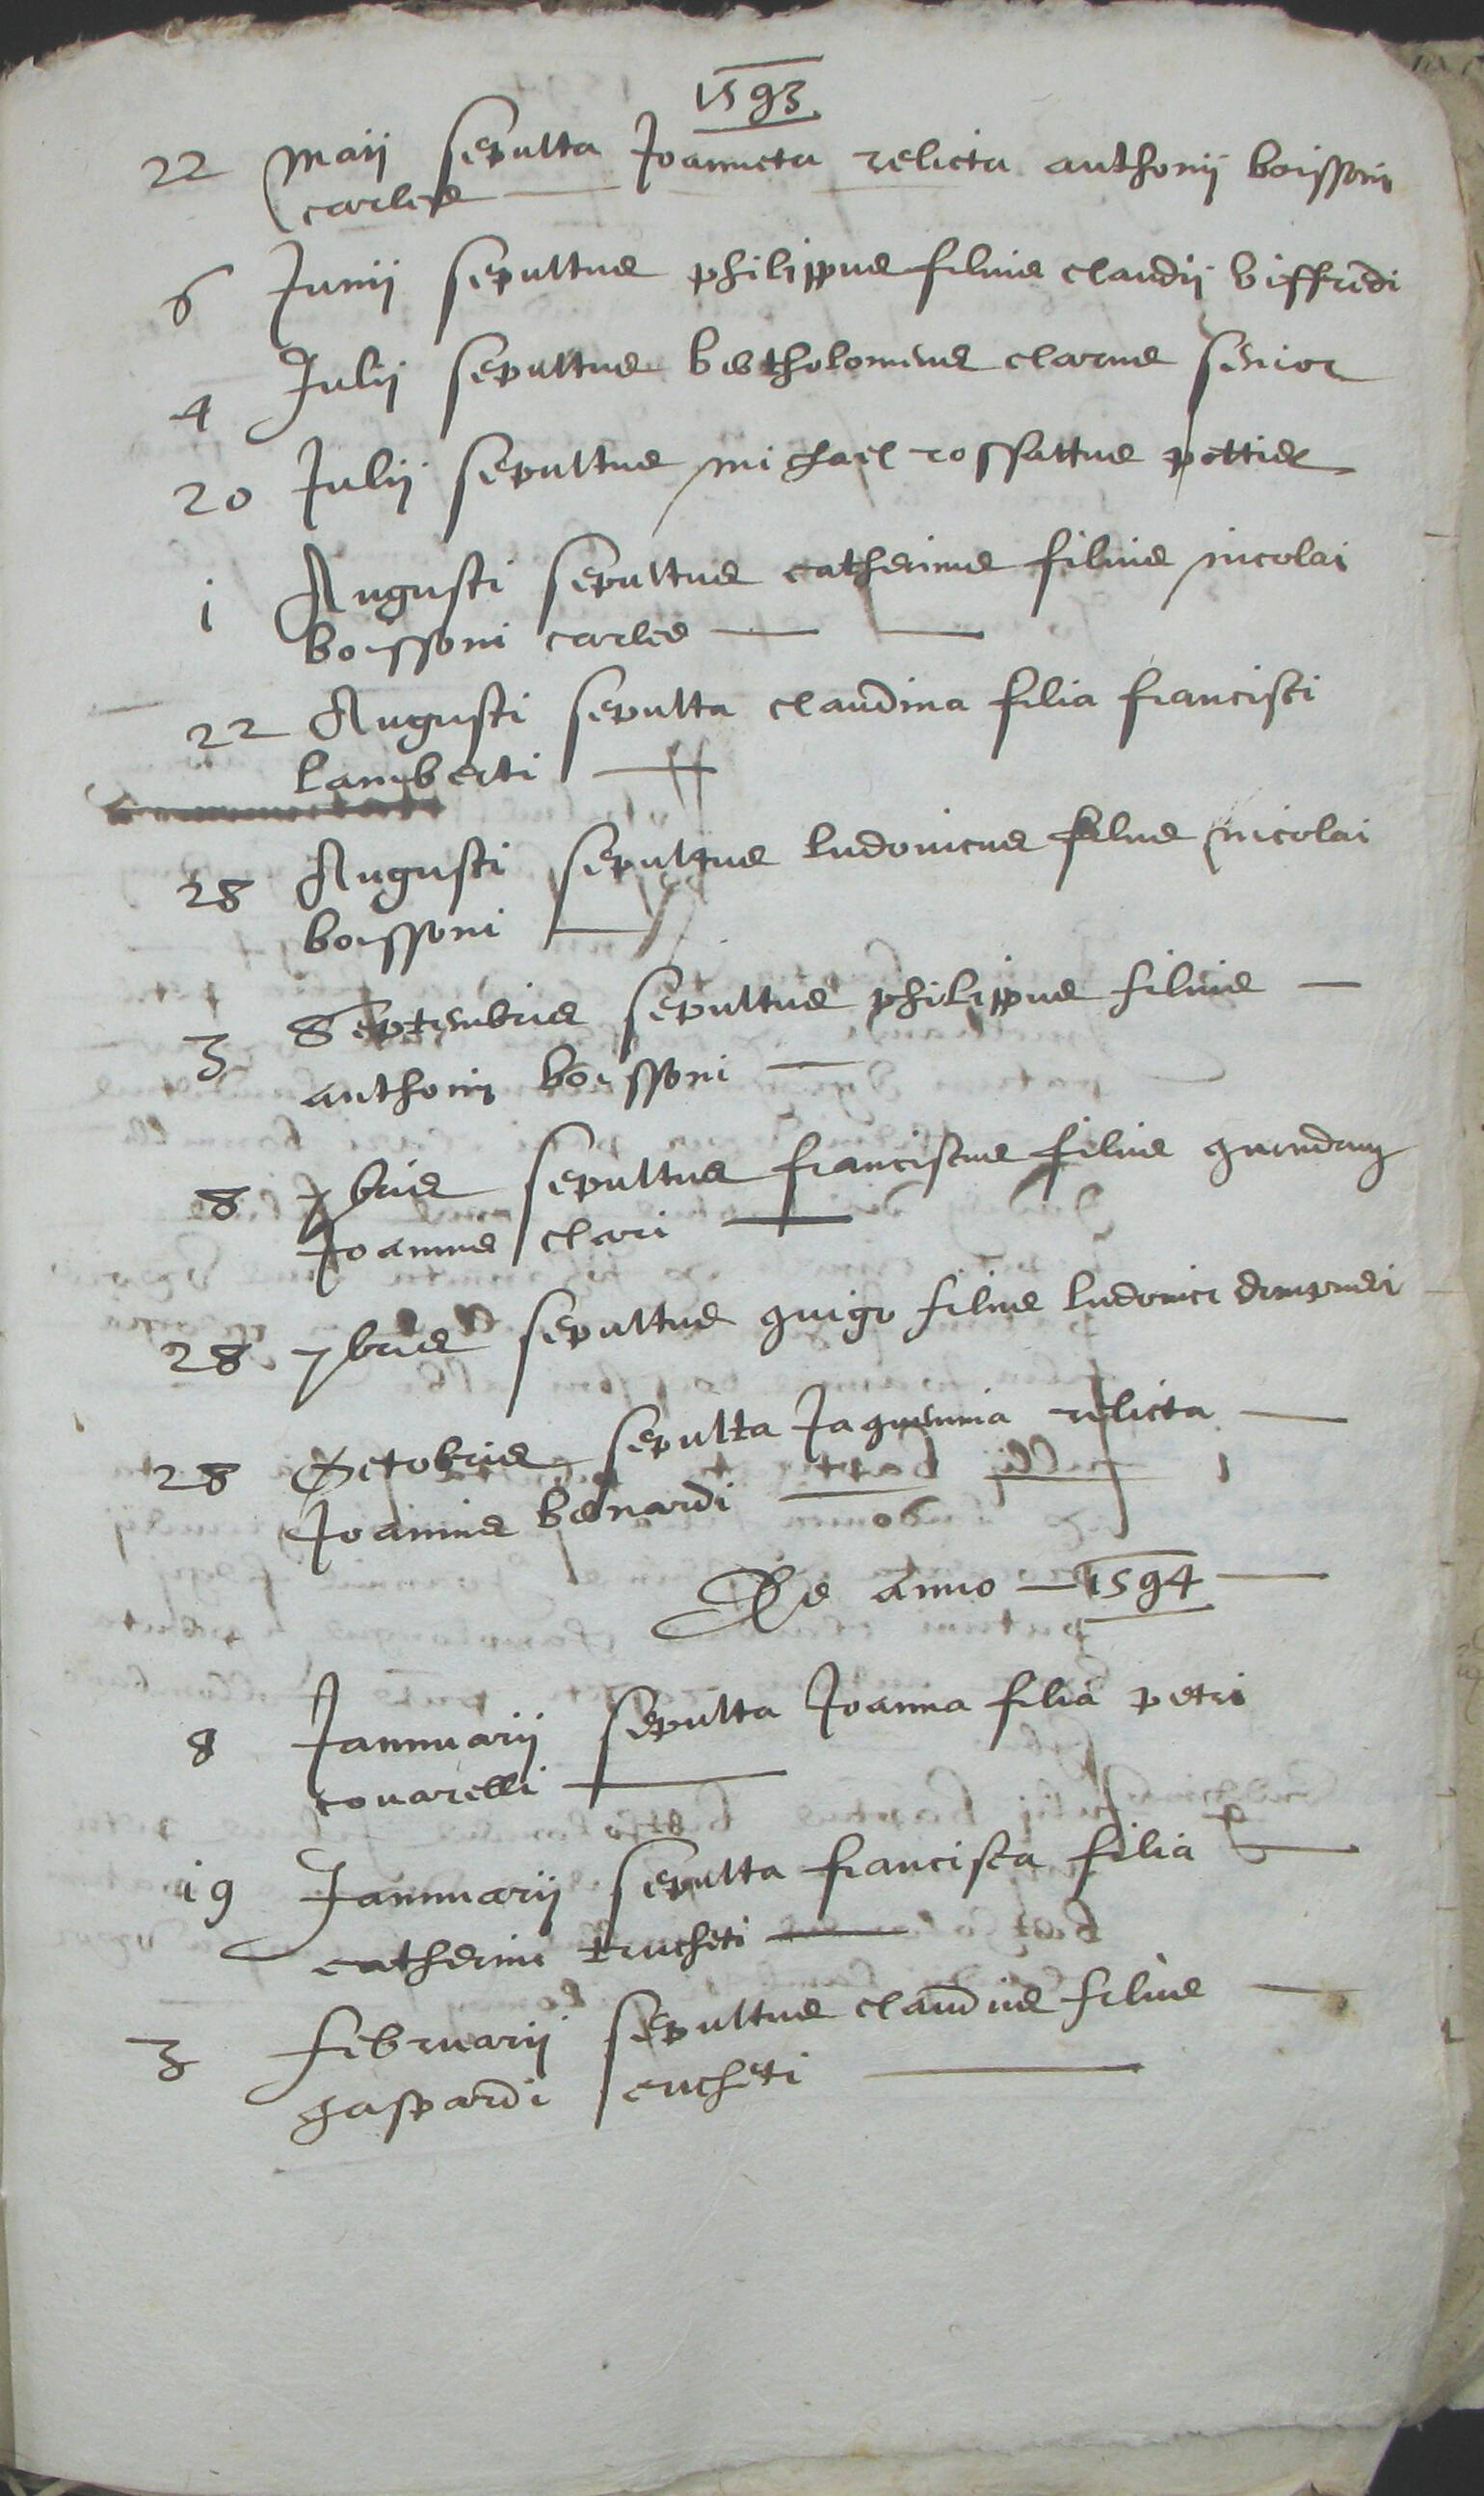 1593
22 Maii sepulta Joanneta relicta anthonii boissoni
carles
6 Junii sepultus philippus filius claudii biffredi
4 Julii sepultus bertholomeus clarus senior
20 Julii sepultus michael rossattus pottier
i Augusti sepultus catherinus filius nicolai
boissoni carles
22 Augusti sepulta claudina filia francisci
lamberti
28 Augusti sepultus ludovicus filius nicolai
boissoni
3 Septembris sepultus philippus filius
anthonii boissoni
8 7bris sepultus franciscus filius quondam
Joannis clari
28 7bris sepultus guigo filius ludovici
28 Octobris sepulta Jaquemina relicta
Joannis bernardi
De anno 1594
8 Jannuarii sepulta Joanna filia petri
covarelli
i9 Jannuarii sepulta francisca filia
catherini trucheti
3 februarii sepultus claudius filius
gaspardi